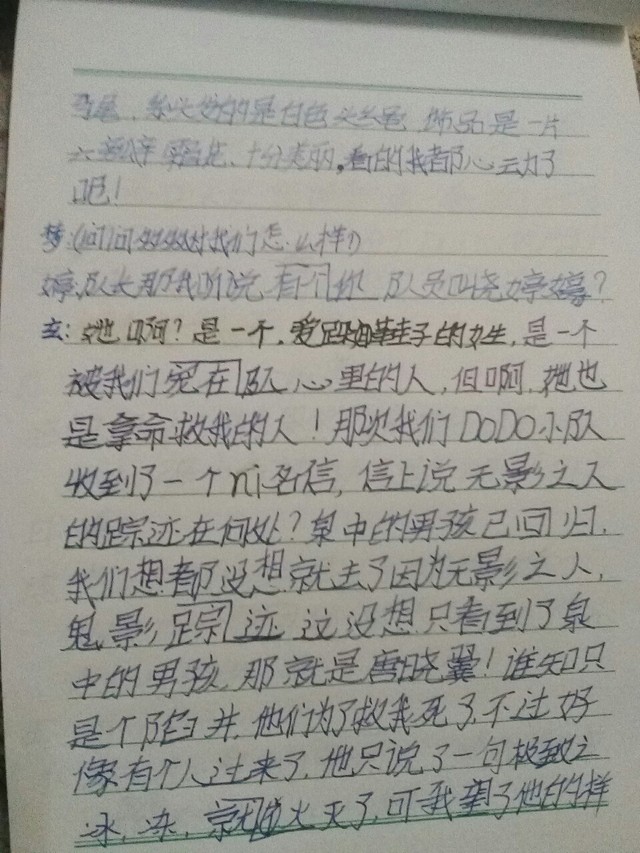 马尾，条头发的是白色头丝毫，饰品是一片
六 雪花、十分美丽，看的我都心云力了
吧！
梦：(问问 对我们怎么样)
婷：队长那我听说有个你 队员叫尧婷婷？
玄：她啊？是一个，爱 的女生，是一个
被我们宠在队心里的人，但啊，她也
是拿命救我的人！那次我们DODO小队
收到了一个ni名信，信上说无影之人
的踪迹在何处？泉中的男孩已回归．
我们想都没想就去了因为无影之人，
鬼影踪迹 这没想只看到了泉
中的男孩，那就是唐晓翼！谁知只
是个陷井，他们为了救我死了，不过好
像有个人过来了，他只说了一句极致之
冰，冻， 火灭了，可我 了他的样